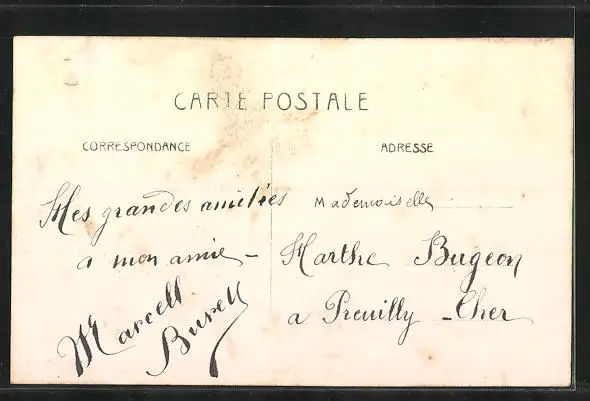 CARTE POSTALE
CORRESPONDANCE
ADRESSE
Mes grandes amitiées
a mon amie -
Marcell
Burell
Mademoiselle
Marthe Bugeon
a Preuilly - Cher